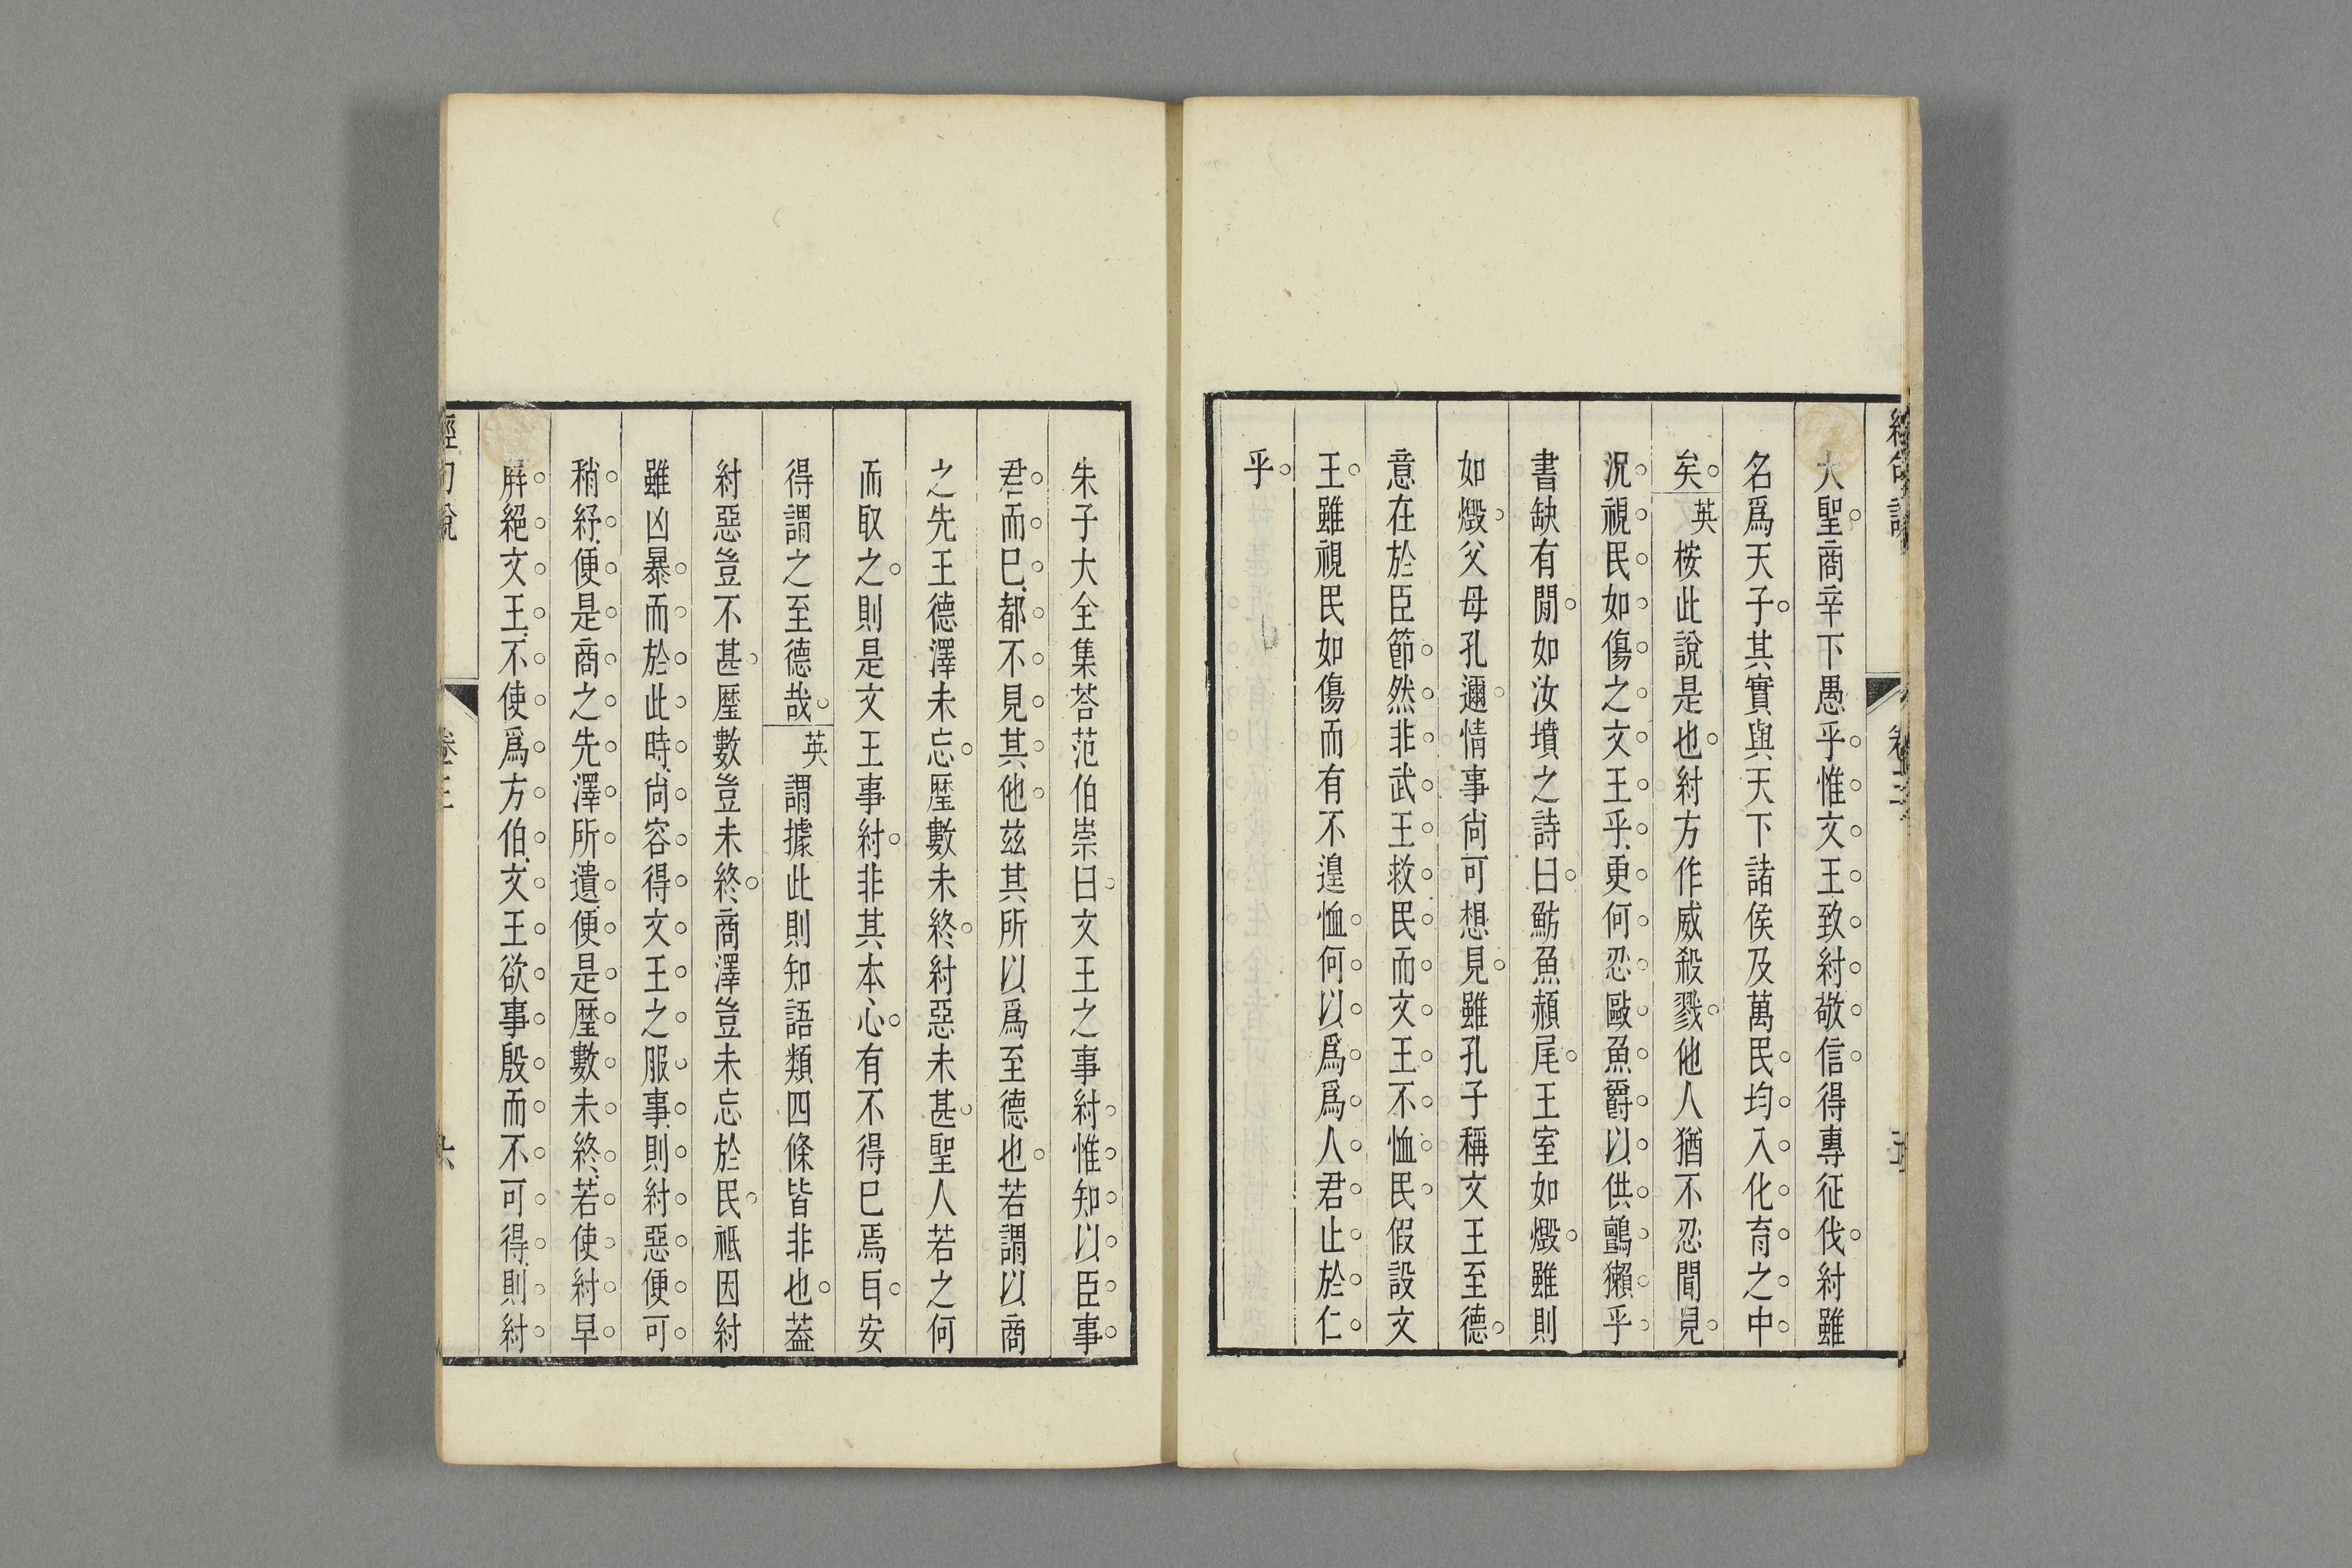 大聖商辛下愚乎惟文王致紂敬信得專征伐紂雖
名爲天子其實與天下諸侯及萬民均入化育之中
矣英桉此說是也紂方作威殺戮他人猶不忍聞見
況視民如傷之文王乎更何忍敺魚爵以供鸇獺乎
書缺有閒如汝墳之詩曰魴魚赬尾王室如燬雖則
如燬父母孔邇情事尙可想見雖孔子稱文王至德
意在於臣節然非武王救民而文王不恤民假設文
王雖視民如傷而有不遑恤何以爲爲人君止於仁
乎
朱子大全集荅范伯崇曰文王之事紂惟知以臣事
君而已都不見其他茲其所以爲至德也若謂以商
之先王德澤未忘厯數未終紂惡未甚聖人若之何
而取之則是文王事紂非其本心有不得已焉耳安
得謂之至德哉英謂據此則知語類四條皆非也葢
紂惡豈不甚厯數豈未終商澤豈未忘於民祗因紂
雖凶暴而於此時尙容得文王之服事則紂惡便可
稍紓便是商之先澤所遺便是厯數未終若使紂早
屛絕文王不使爲方伯文王欲事殷而不可得則紂
經句說
卷三
六